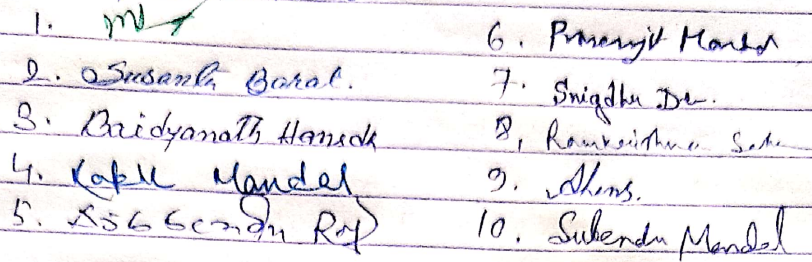 1.
2. Susanta Baral.
3. Baidyanath Hansda
4. Kapil Mandal
5. Roy
6. Prasenjit Mandal
7. Snigdha De.
8. Ramkrishna
9.
10. Subendu Mandal